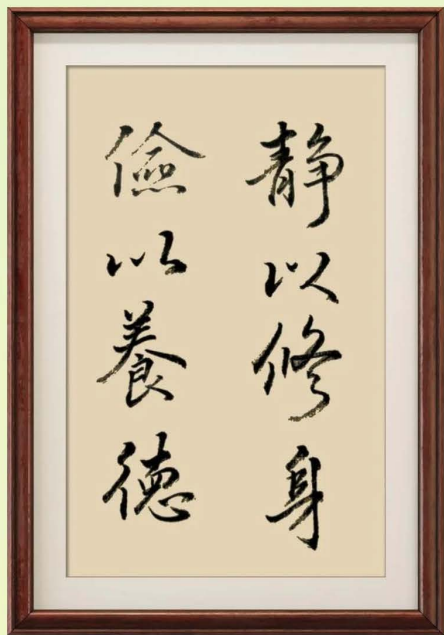 静以修身
儉以養德